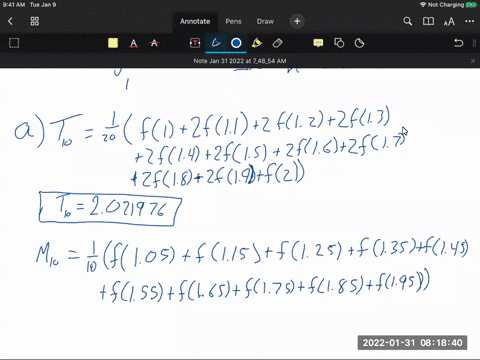 9:41 AM Tue Jan 9
Not Charging
Annotate Pens Draw +
AA
Note Jan 31 2022 at 7_48_54 AM
1
a) T10 = 1/20 (f(1) + 2f(1.1) + 2f(1.2) + 2f(1.3)
+ 2f(1.4) + 2f(1.5) + 2f(1.6) + 2f(1.7)
+ 2f(1.8) + 2f(1.9) + f(2))
T10 = 2.021976
M10 = 1/10 (f(1.05) + f(1.15) + f(1.25) + f(1.35) + f(1.45)
+ f(1.55) + f(1.65) + f(1.75) + f(1.85) + f(1.95))
2022-01-31 08:18:40